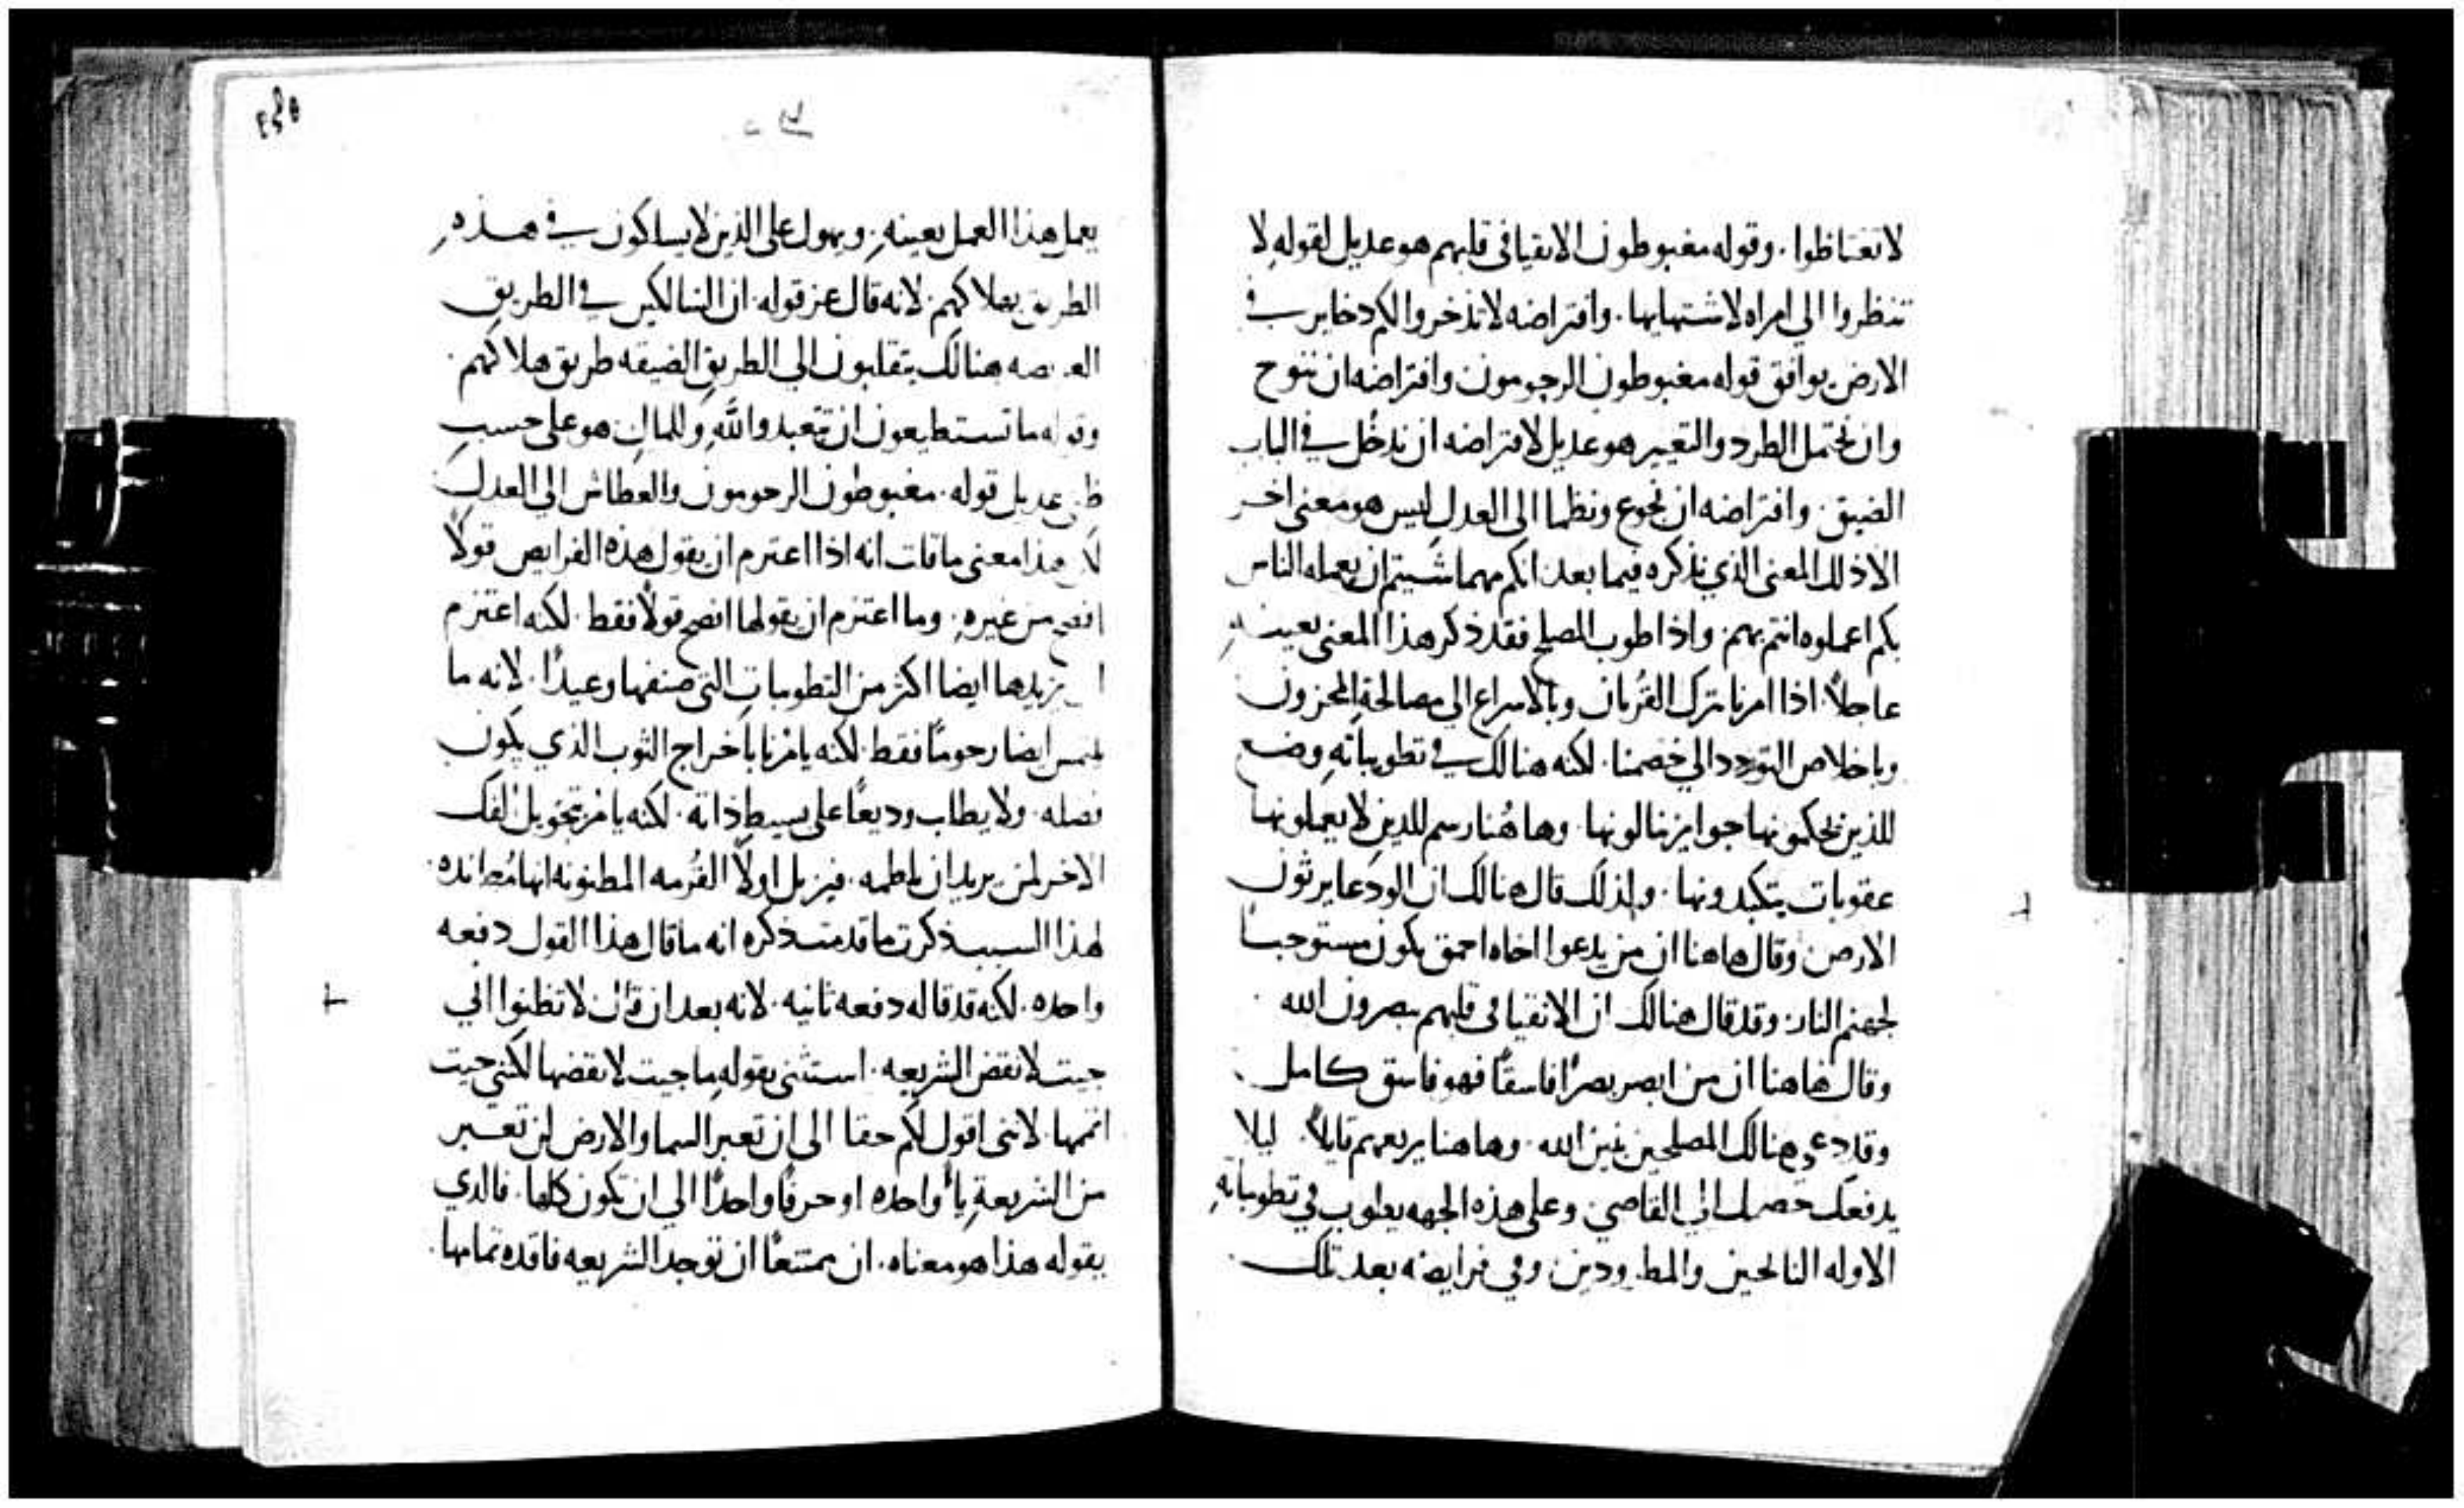 لا تغتاظوا. وقوله مغبوطون الانقيا في قلبهم هو عديل لقوله لا
تنظروا الي امراه لاشتهايها. وافتراضه لا تذخروا لكم دخاير في
الارض يوافق قوله مغبوطون الرحومون وافتراضه ان ننوح
وان نحتمل الطرد والتعيير هو عديل لافتراضه ان ندخل في الباب
الضيق. وافتراضه ان نجوع ونظما الى العدل ليس هو معنى اخر
الا ذلك المعنى الذي نذكره فيما بعد انكم مهما شيتم ان يعمله الناس
بكم اعملوه انتم بهم. واذا طوب المصلح فقد ذكر هذا المعنى بعينه
عاجلاً. اذا امرنا بترك القربان وبالاسراع الى مصالحة المحزون
وباخلاص التودد الي خصمنا. لكنه هنالك في تطويباته وضع
للذين يحكمونها جوايز ينالونها. وها هُنا رسم للذين لا يعملونها
عقوبات يتكبدونها. ولذلك قال هنالك ان الودعا يرثون
الارض وقال هاهنا ان من يدعوا اخاه احمق يكون مستوجباً
لجهنم النار. وقد قال هنالك ان الانقيا في قلبهم يبصرون الله
وقال هاهنا ان من ابصر بصرًا فاسقًا فهو فاسق كامل.
وقد دعي هنالك المصلحين بنين الله. وها هنا يريعهم قايلاً. ليلا
يدفعك خصمك الي القاضي. وعلى هذه الجهه يطوب في تطويباته
الاوله النايحين والمطرودين. وفي فرايضه بعد تلك
يعمل هذا العمل بعينه. ويهول على الذين لا يسلكون في هذه
الطريق بهلاكهم. لانه قال عز قوله. ان السالكين في الطريق
العريضه هنالك يتقلبون الي الطريق الضيقه طريق هلاكهم.
وقوله ما تستطيعون ان تتعبدوا لله وللمال هو على حسب
ظني عديل قوله. مغبوطون الرحومون والعطاش الي العدل
لان هذا معنى ما قلت انه اذا اعتزم ان يقول هذه الفرايض قولاً
افصح من غيره. وما اعتزم ان يقولها افصح قولاً فقط. لكنه اعتزم
ان يزيدها ايضا اكثر من التطويبات التي صنفها وعيدًا. لانه ما
يلتمس ايضا رحومًا فقط. لكنه يامُرنا باخراج الثوب الذي يكون
فضله. ولا يطلب وديعًا على بسيط ذاته. لكنه يامُر بتحويل الفك
الاخر لمن يريد ان يلطمه. فيزيل اولاً المظنونه انها مُضادده.
لهذا السبب ذكرت ما قدمت ذكره انه ما قال هذا القول دفعه
واحده. لكنه قد قاله دفعه ثانيه. لانه بعد ان قال لا تظنوا اني
جيت لانقض الشريعه. استثنى بقوله ما جيت لانقضها لكني جيت
اتممها. لانني اقول لكم حقا الى ان تعبر السما والارض لن تعبر
من الشريعة ياءً واحده او حرفًا واحدًا الي ان تكون كلها. فالذي
يقوله هذا هو معناه. ان ممتنعًا ان توجد الشريعه فاقده تمامها.